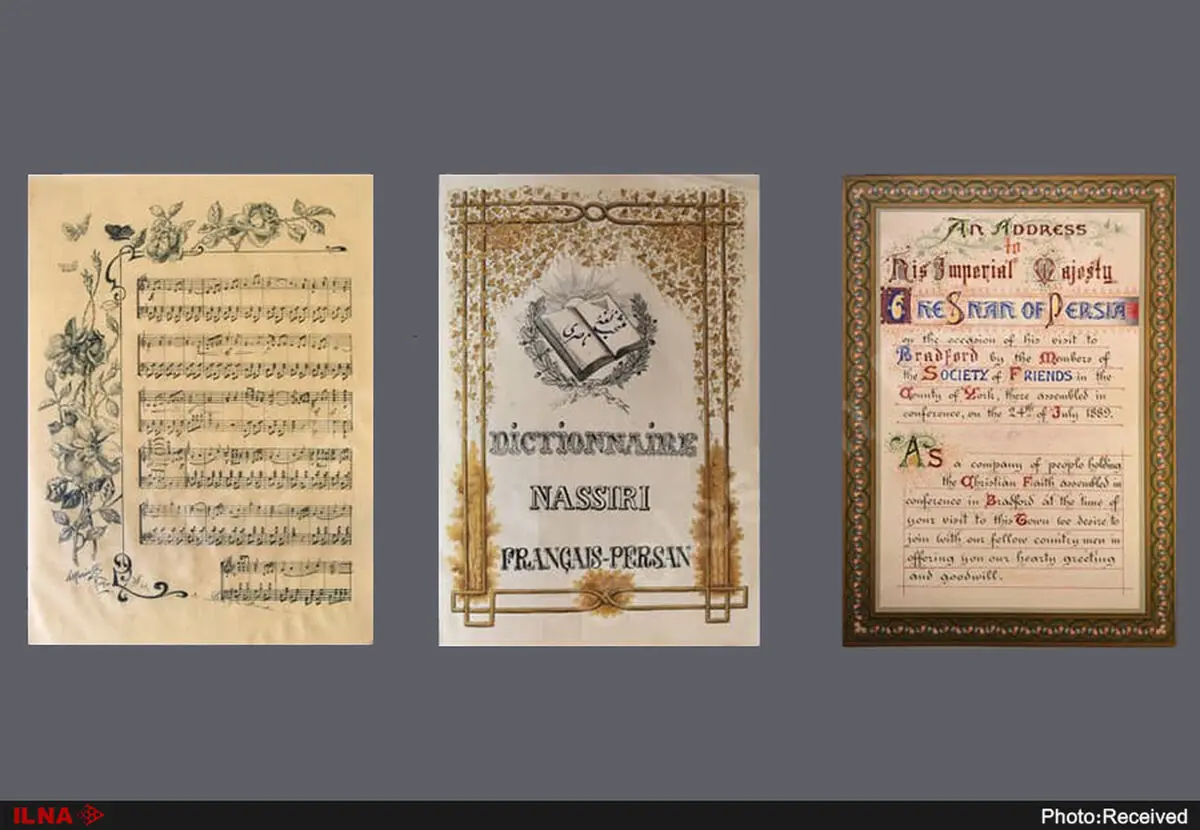 DICTIONNAIRE
NASSIRI
FRANÇAIS-PERSAN
An Address
to
His Imperial Majesty
The Shah of Persia
on the occasion of his visit to
Bradford by the Members of
the SOCIETY of FRIENDS in the
County of York, there assembled in
conference, on the 24th of July 1889.
As a company of people holding
the Christian Faith assembled in
conference in Bradford at the time of
your visit to this Town we desire to
join with our fellow country men in
offering you our hearty greeting
and goodwill.
ILNA
Photo:Received